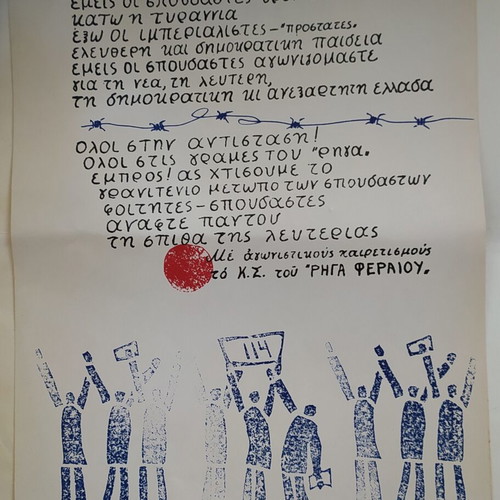 εμεις οι σπουδαστες
κατω η τυραννια
εξω οι ιμπεριαλιστες-"προστατες"
ελευθερη και δημοκρατικη παιδεια
εμεις οι σπουδαστες αγωνιζομαστε
για τη νεα, τη λευτερη,
τη δημοκρατικη κι ανεξαρτητη ελλαδα
ολοι στην αντισταση!
ολοι στις γραμες του "ρηγα"
εμπρος! ας χτισουμε το
γρανιτενιο μετωπο των σπουδαστων
φοιτητες-σπουδαστες
αναφτε παντου
τη σπιθα της λευτεριας
Μέ ἀγωνιστικούς χαιρετισμούς
τό Κ.Σ. τοῦ "ΡΗΓΑ ΦΕΡΑΙΟΥ"
114